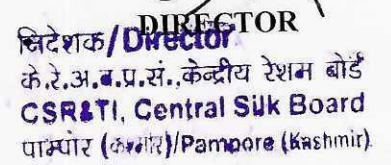 DIRECTOR
निदेशक/Director
के.रे.अ.व.प्र.सं.,केन्द्रीय रेशम बोर्ड
CSR&TI, Central Silk Board
पाम्पोर (कश्मीर)/Pampore (Kashmir)